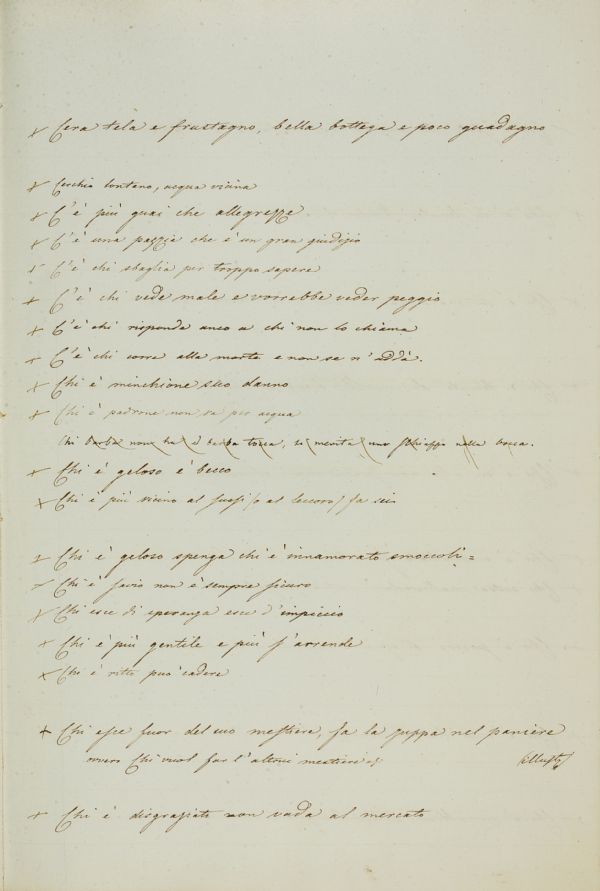 x Cera tela e frustagno, bella bottega e poco guadagno
x Cerchio lontano, acqua vicina
x C'è più guai che allegrezze
x C'è una pazzia che è un gran giudizio
x C'è chi sbaglia per troppo sapere
x C'è chi vede male e vorrebbe veder peggio
x C'è chi risponde anco a chi non lo chiama
x C'è chi corre alla morte e non se n'addà.
x Chi è minchione suo danno
x Chi è padrone non va per acqua
Chi barba non ha e barba tocca, si merita uno schiaffo nella bocca.
x Chi è geloso è becco
x Chi è più vicino al (o al fa sei
x Chi è geloso spenga chi è innamorato smoccoli =
x Chi è savio non è sempre sicuro
x Chi esce di speranza esce d'impiccio
x Chi è più gentile e più s'arrende
x Chi è ritto può cadere
x Chi esce fuor del suo mestiere, fa la zuppa nel paniere
ovvero Chi vuol far l'altrui mestiere
x Chi è disgraziato non vada al mercato